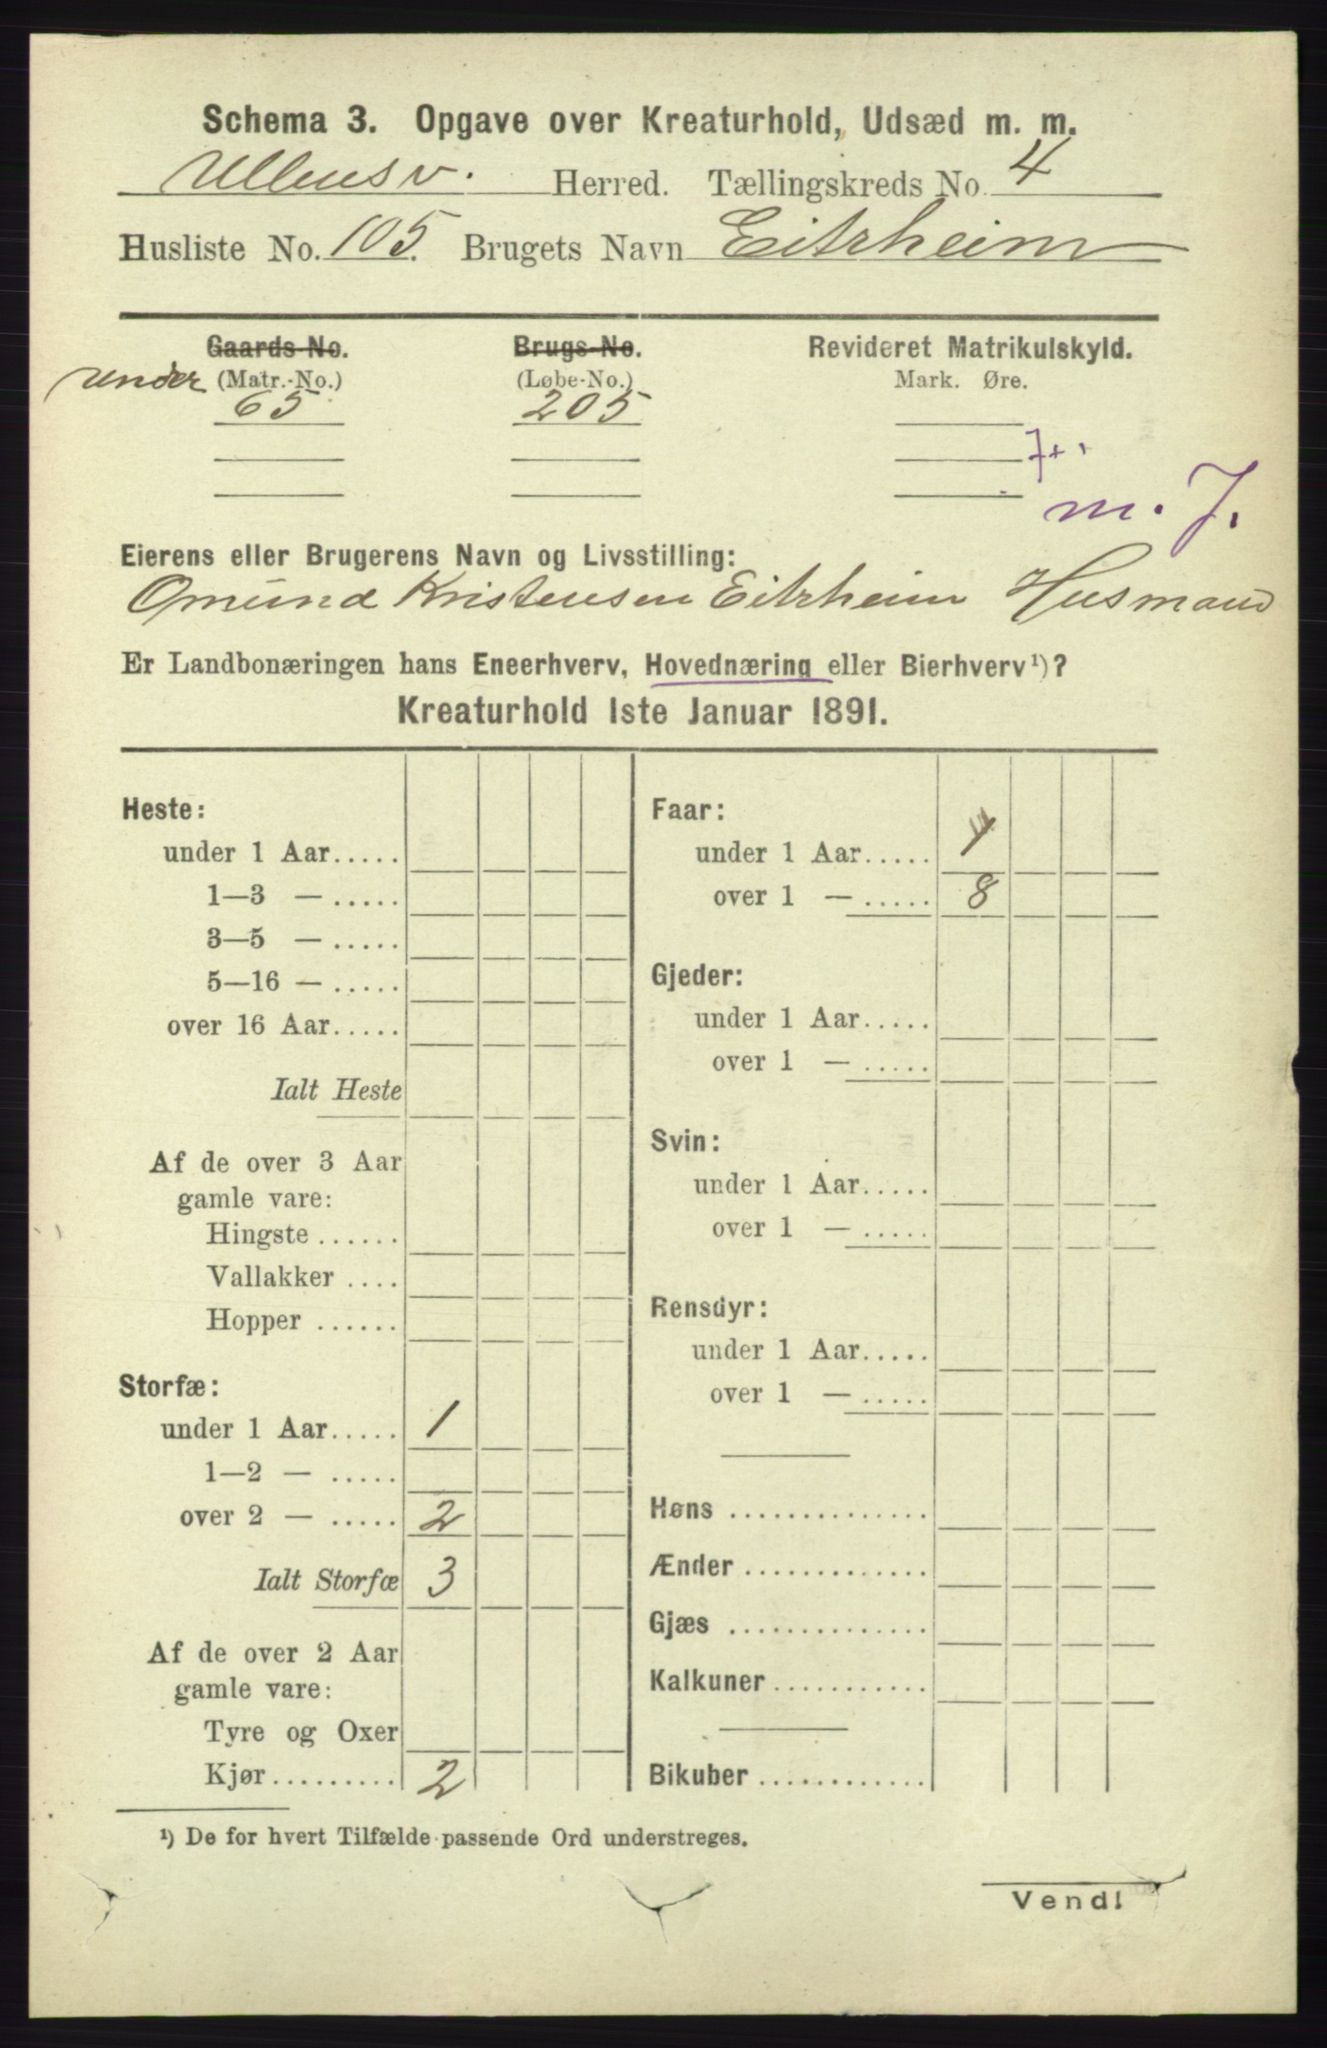 Schema 3. Opgave over Kreaturhold, Udsæd m. m.
Ullensv. Herred. Tællingskreds No. 4
Husliste No. 105. Brugets Navn Eitrheim
Gaards-No. Brugs-No. Revideret Matrikulskyld.
under (Matr.-No.) (Løbe-No.) Mark. Øre.
65 205
m. J.
Eierens eller Brugerens Navn og Livsstilling:
Omund Kristensen Eitrheim Husmand
Er Landbonæringen hans Eneerhverv, Hovednæring eller Bierhverv ¹)?
Kreaturhold 1ste Januar 1891.
Heste:
under 1 Aar.....
1—3 — .....
3—5 — .....
5—16 — .....
over 16 Aar.....
Ialt Heste
Af de over 3 Aar
gamle vare:
Hingste ......
Vallakker ....
Hopper ......
Storfæ:
under 1 Aar..... 1
1—2 — .....
over 2 — ..... 2
Ialt Storfæ 3
Af de over 2 Aar
gamle vare:
Tyre og Oxer
Kjør......... 2
Faar:
under 1 Aar.....
over 1 — ..... 8
Gjeder:
under 1 Aar.....
over 1 — .....
Svin:
under 1 Aar.....
over 1 — .....
Rensdyr:
under 1 Aar.....
over 1 — .....
Høns ..............
Ænder .............
Gjæs ..............
Kalkuner ...........
Bikuber ............
¹) De for hvert Tilfælde passende Ord understreges.
Vend!